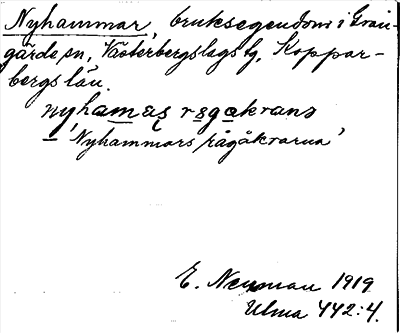 Nyhammar, bruksegendom i Gran-
gärde sn, Västerbergslags tg, Koppar-
bergs län.
nyhamas rsgakrans
'Nyhammars rågåkrarna'
E. Neuman 1919
Ulma 442:4.